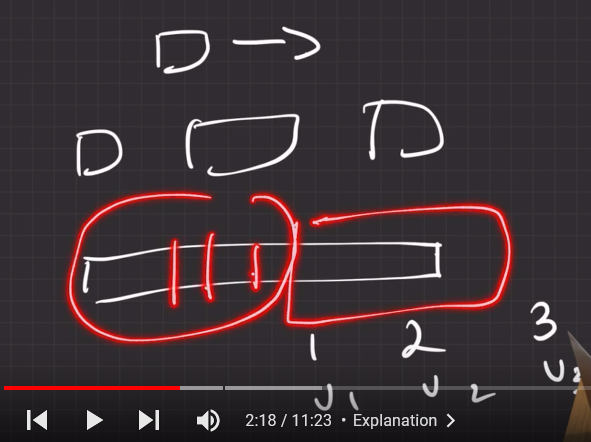 D →
D D
1 2 3
V1 V2 V3
2:18 / 11:23 • Explanation >